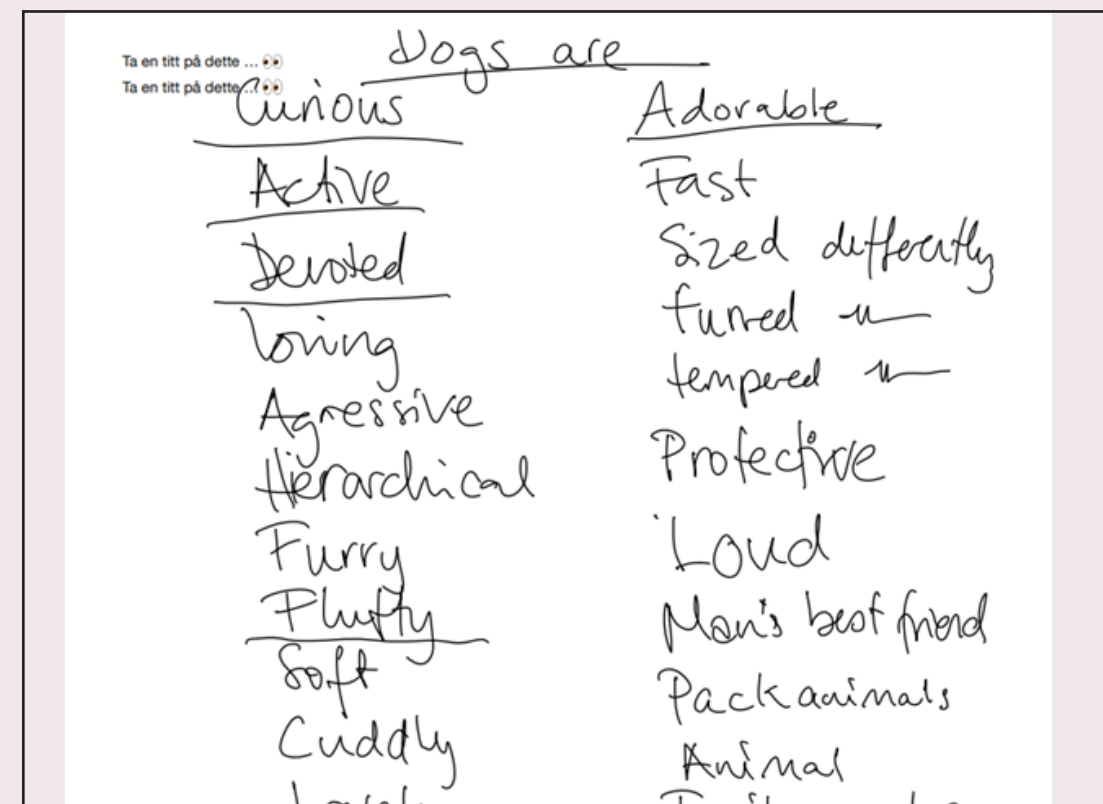 Ta en titt på dette ... 👀
Ta en titt på dette ... 👀
Dogs are
Curious
Active
Devoted
Loving
Agressive
Hierarchical
Furry
Fluffy
Soft
Cuddly
Adorable
Fast
Sized differently
furred -"-
tempered -"-
Protective
Loud
Man's best friend
Pack animals
Animal